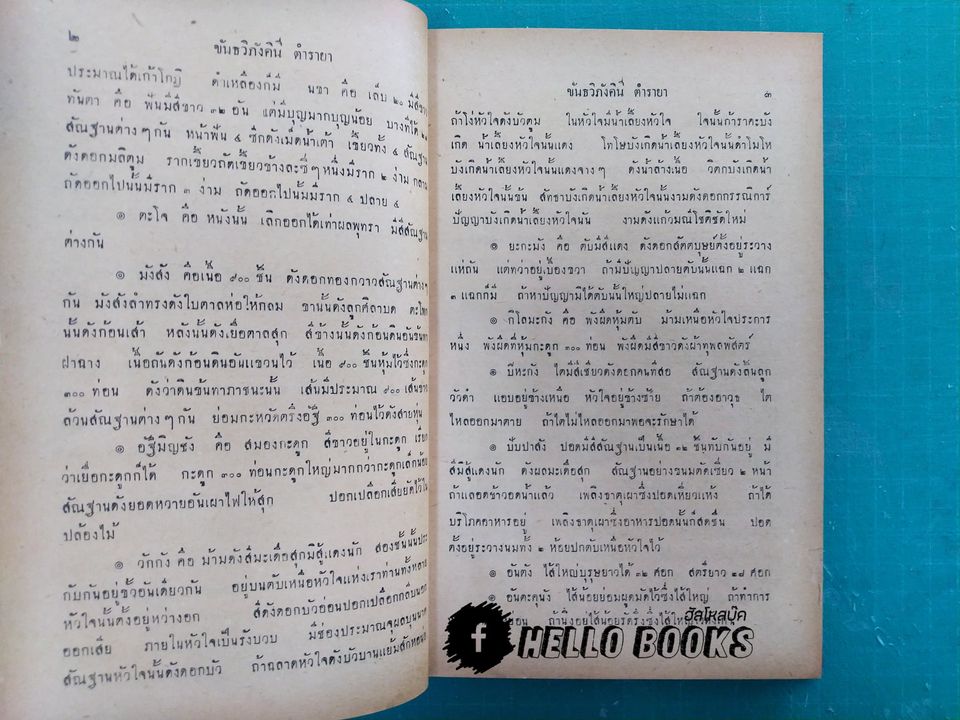 ๒
ขันธวิภังคินี ตำรายา
ประมาณได้เก้าโกฏิ ดำเหลืองก็มี นขา คือ เล็บ ๒๐ มีสีขาว
ทันตา คือ ฟันมีสีขาว ๓๒ อัน แต่มีบุญมากบุญน้อย บางทีได้
สัณฐานต่างๆกัน หน้าฟัน ๔ ซี่กดังเม็ดน้ำเต้า เขี้ยวทั้ง ๔ สัณฐาน
ดังดอกมลิตูม รากเขี้ยวถัดเขี้ยวข้างละซี่ๆหนึ่งมีราก ๒ ง่าม
ถัดออกไปนั้นมีราก ๓ ง่าม ถัดออกไปนั้นมีราก ๔ ปลาย ๔
๏ ตะโจ คือ หนังนั้น เลิกออกได้เท่าผลพุทรา มีสีสัณฐาน
ต่างกัน
๏ มังสัง คือเนื้อ ๙๐๐ ชิ้น ดังดอกทองกวาวสัณฐานต่างๆ
กัน มังสังลำทรงดังใบตาลห่อให้กลม ขานั้นดังลูกศิลาบด
นั้นดังก้อนเส้า หลังนั้นดังเยื่อตาลสุก สีข้างนั้นดังก้อนดินอัน
ฝาฉาง เนื้อถันดังก้อนดินอันแขวนไว้ เนื้อ ๙๐๐ ชิ้นหุ้มไว้ซึ่งกระดูก
๓๐๐ ท่อน ดังว่าดินขันทาภาชนะนั้น เส้นมีประมาณ ๙๐๐ เส้น
ล้วนสัณฐานต่างๆกัน ย่อมกะหวัดตรึงอัฐิ ๓๐๐ ท่อนไว้ดังสายหุ่น
๏ อัฐิมิญชัง คือ สมองกะดูก สีขาวอยู่ในกะดูก เรียก
ว่าเยื่อกะดูกก็ได้ กะดูก ๓๐๐ ท่อนกะดูกใหญ่มากกว่ากะดูกเล็กน้อย
สัณฐานดังยอดหวายอันเผาไฟให้สุก ปอกเปลือกเสียยัดไว้ใน
ปล้องไม้
๏ วักกัง คือ ม้ามดังสีมะเดื่อสุกมิสู้แดงนัก สองชั้นนั้น
กับกันอยู่ขั้วอันเดียวกัน อยู่บนตับเหนือหัวใจแห่งเราท่านทั้งหลาย
หัวใจนั้นตั้งอยู่หว่างอก สีดังดอกบัวอ่อนปอกเปลือกกลีบนอก
ออกเสีย ภายในหัวใจเป็นรังบวบ มีช่องประมาณจุผลบุนนาค
สัณฐานหัวใจนั้นดังดอกบัว ถ้าฉลาดหัวใจดังบัวบานแย้มสัก
ขันธวิภังคินี ตำรายา
๓
ถ้าโง่หัวใจดังบัวตูม ในหัวใจมีน้ำเลี้ยงหัวใจ ใจนั้นถ้าราคะบัง
เกิด น้ำเลี้ยงหัวใจนั้นแดง โทโษบังเกิดน้ำเลี้ยงหัวใจนั้นดำโมโห
บังเกิดน้ำเลี้ยงหัวใจนั้นแดงจางๆ ดังน้ำล้างเนื้อ วิตกบังเกิดน้ำ
เลี้ยงหัวใจนั้นข้น สัทธาบังเกิดน้ำเลี้ยงหัวใจนั้นงามดังดอกกรรณิการ์
ปัญญาบังเกิดน้ำเลี้ยงหัวใจนั้น งามดังแก้วมณีโชติชัดใหม่
๏ ยะกะนัง คือ ตับมีสีแดง ดังดอกสัตตบุษย์ตั้งอยู่ระวาง
แห่ถัน แต่ทว่าอยู่เบื้องขวา ถ้ามีปัญญาปลายตับนั้นแฉก ๒ แฉก
๓ แฉกก็มี ถ้าหาปัญญามิได้ตับนั้นใหญ่ปลายไม่แฉก
๏ กิโลมะกัง คือ พังผืดหุ้มตับ ม้ามเหนือหัวใจประการ
หนึ่ง พังผืดที่หุ้มกะดูก ๓๐๐ ท่อน พังผืดมีสีขาวดังผ้าทุพลพัสตร์
๏ บิหะกัง ไตมีสีเขียวดังดอกคนทีสอ สัณฐานดังลิ้นลูก
วัวดำ แอบอยู่ข้างเหนือ หัวใจอยู่ข้างซ้าย ถ้าต้องอาวุธ ไต
ไหลออกมาตาย ถ้าไตไม่ไหลออกมาพอจะรักษาได้
๏ บับปาสัง ปอดมีสีสัณฐานเป็นเนื้อ ๓๒ ชิ้นทับกันอยู่ มี
สีมิสู้แดงนัก ดังผลมะเดื่อสุก สัณฐานอย่างขนมตัดเขี้ยว ๒ หน้า
ถ้าแลอดข้าวอดน้ำแล้ว เพลิงธาตุเผาซึ่งปอดเหี่ยวแห้ง ถ้าได้
บริโภคอาหารอยู่ เพลิงธาตุเผาซึ่งอาหารปอดนั้นก็สดชื่น ปอด
ตั้งอยู่ระวางนมทั้ง ๒ ห้อยปกดับเหนือหัวใจไว้
๏ อันตัง ไส้ใหญ่บุรุษยาวได้ ๓๒ ศอก สตรียาว ๒๘ ศอก
๏ อันตะคุนัง ไส้น้อยย่อมผูดมัดไว้ซึ่งไส้ใหญ่ ถ้าทำการ
ฮัลโหลบุ๊ค
f HELLO BOOKS